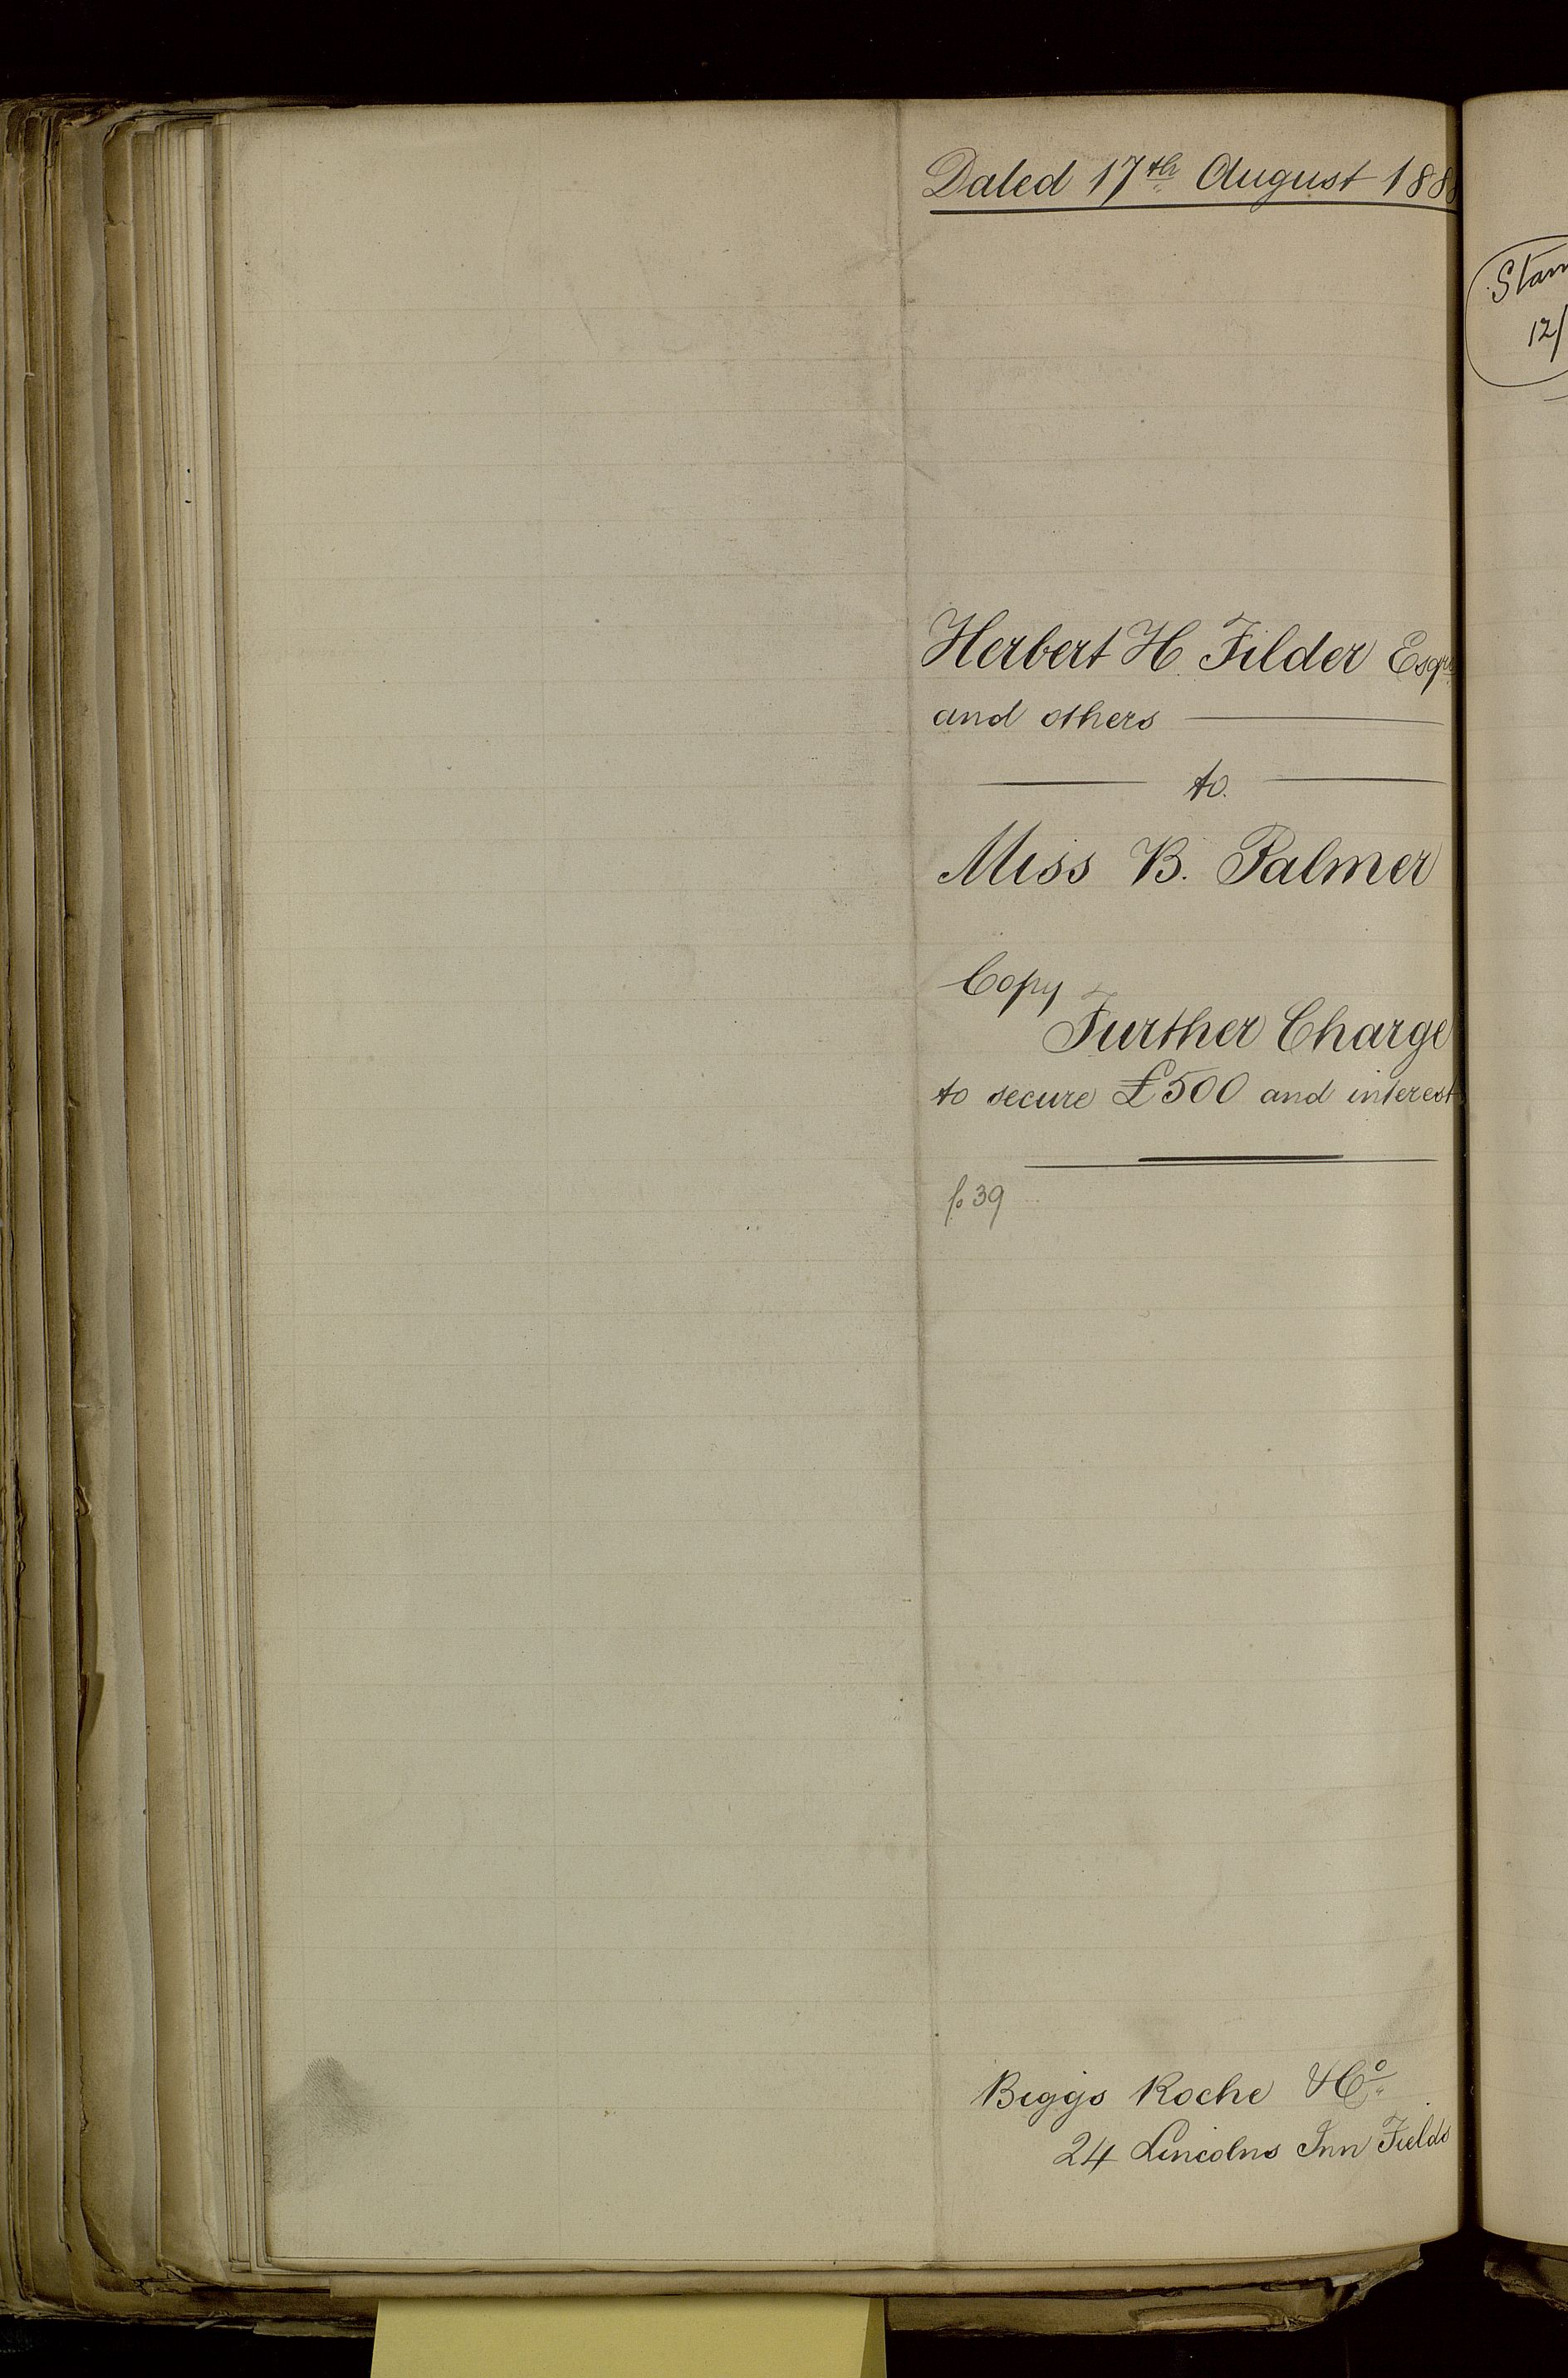 Dated 17th August 188
Herbert H. Filder Esqre
and others
to
Miss B. Palmer
Copy
Further Charge
to secure £500 and interest
fo 39
Biggs Roche & Co
24 Lincolns Inn Fields
12/